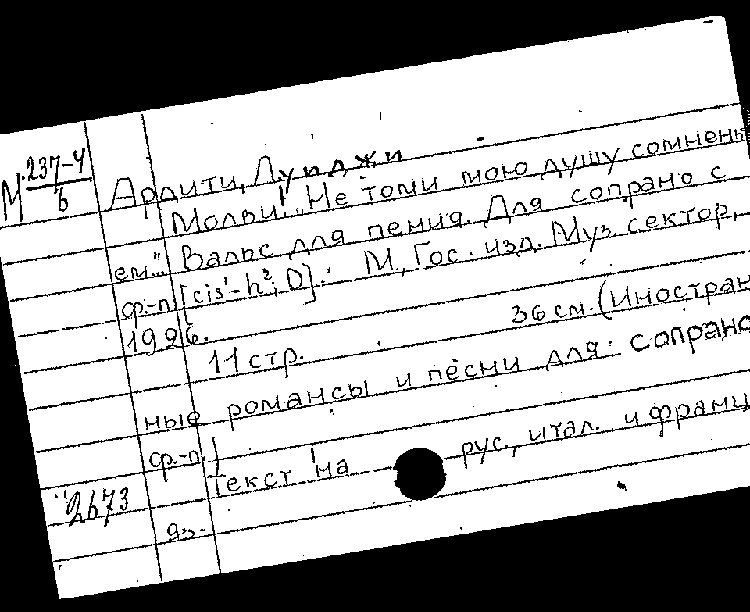 М. 237-4
6
Ардити, Луиджи
Молви! „Не томи мою душу сомнень
ем..." Вальс для пения. Для сопрано с
ф.-п. [cis¹-h²; D]. М, Гос. изд. Муз. сектор,
1926.
11 стр. 36 см. (Иностран
ные романсы и песни для сопрано
ф.-п.)
Текст на рус., итал. и франц
яз.
2673